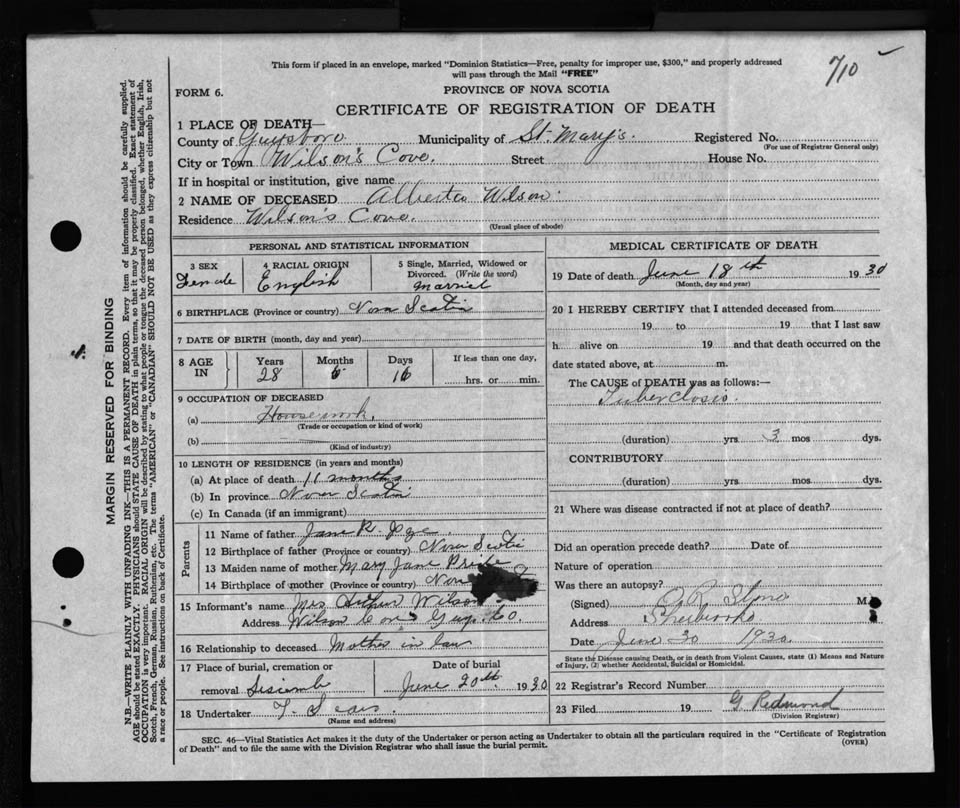 710
This form if placed in an envelope, marked "Dominion Statistics—Free, penalty for improper use, $300," and properly addressed
will pass through the Mail "FREE"
FORM 6.
PROVINCE OF NOVA SCOTIA
CERTIFICATE OF REGISTRATION OF DEATH
1 PLACE OF DEATH—
County of Guysboro. Municipality of St. Mary's. Registered No.
(For use of Registrar General only)
City or Town Wilson's Cove. Street House No.
If in hospital or institution, give name
2 NAME OF DECEASED Alberta Wilson.
Residence Wilson's Cove.
(Usual place of abode)
PERSONAL AND STATISTICAL INFORMATION
3 SEX 4 RACIAL ORIGIN 5 Single, Married, Widowed or
Divorced. (Write the word)
Female English Married
6 BIRTHPLACE (Province or country) Nova Scotia
7 DATE OF BIRTH (month, day and year)
8 AGE IN Years Months Days If less than one day,
28 6 16 hrs. or min.
9 OCCUPATION OF DECEASED
(a) Housework.
(Trade or occupation or kind of work)
(b)
(Kind of industry)
10 LENGTH OF RESIDENCE (in years and months)
(a) At place of death 11 months
(b) In province Nova Scotia
(c) In Canada (if an immigrant)
Parents
11 Name of father
12 Birthplace of father (Province or country) Nova Scotia
13 Maiden name of mother Mary Jane
14 Birthplace of mother (Province or country) Nova
15 Informant's name Mrs Arthur Wilson
Address Wilson Cove Guy. Co.
16 Relationship to deceased Mother in law
17 Place of burial, cremation or Date of burial
removal June 20th. 1930
18 Undertaker T. Sears.
(Name and address)
MEDICAL CERTIFICATE OF DEATH
19 Date of death June 18th 1930
(Month, day and year)
20 I HEREBY CERTIFY that I attended deceased from
19 to 19 that I last saw
h alive on 19 and that death occurred on the
date stated above, at m.
The CAUSE of DEATH was as follows:—
Tuberclosis.
(duration) yrs 3 mos dys.
CONTRIBUTORY
(duration) yrs mos dys.
21 Where was disease contracted if not at place of death?
Did an operation precede death? Date of
Nature of operation
Was there an autopsy?
(Signed) M
Address Sherbrooke
Date June 20 1930.
State the Disease causing Death, or in death from Violent Causes, state (1) Means and Nature
of Injury, (2) whether Accidental, Suicidal or Homicidal.
22 Registrar's Record Number
23 Filed 19 G. Redmond
(Division Registrar)
SEC. 46—Vital Statistics Act makes it the duty of the Undertaker or person acting as Undertaker to obtain all the particulars required in the "Certificate of Registration
of Death" and to file the same with the Division Registrar who shall issue the burial permit.
(OVER)
MARGIN RESERVED FOR BINDING
N.B.—WRITE PLAINLY WITH UNFADING INK—THIS IS A PERMANENT RECORD. Every item of information should be carefully supplied.
AGE should be stated EXACTLY. PHYSICIANS should STATE CAUSE OF DEATH in plain terms, so that it may be properly classified. Exact statement of
OCCUPATION is very important. RACIAL ORIGIN will be described by stating to what people or tongue the deceased person belonged, whether English, Irish,
Scotch, French, German, Russian, Ruthenian, etc. The terms "AMERICAN" or "CANADIAN" SHOULD NOT BE USED as they express citizenship but not
a race or people. See instructions on back of Certificate.